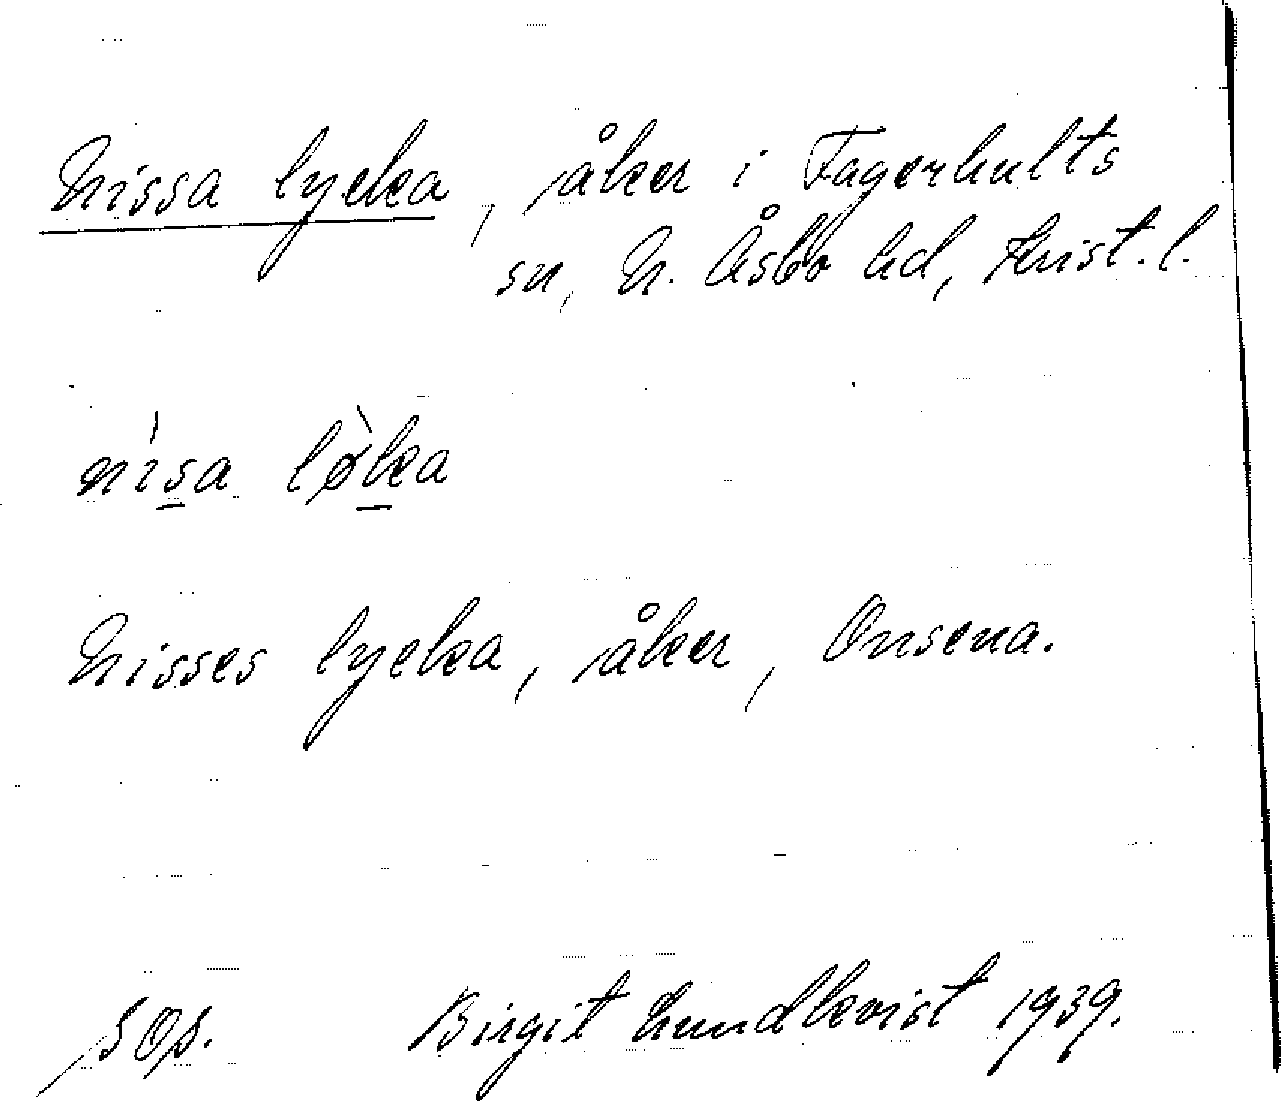 Nissa lycka, åker i Fagerhults
sn, N. Åsbo hd, Krist. l.
nìsa lø̀ka
Nisses lycka, åker, Onsena.
Birgit Lundkvist 1939.